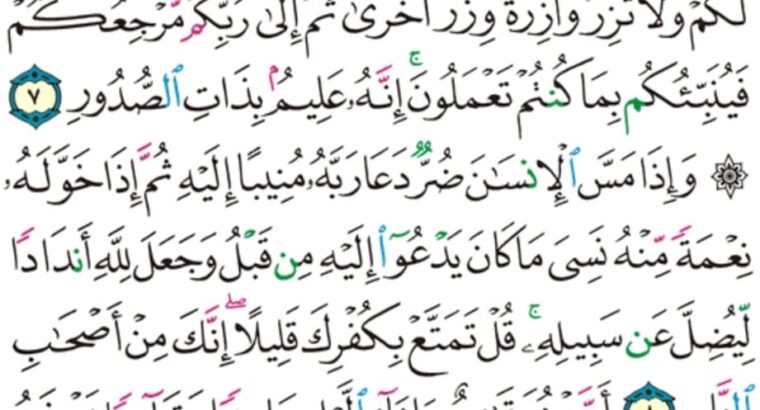 لَكُمْ وَلَا تَزِرُ وَازِرَةٌ وِزْرَ أُخْرَىٰ ثُمَّ إِلَىٰ رَبِّكُم مَّرْجِعُكُمْ
فَيُنَبِّئُكُم بِمَا كُنتُمْ تَعْمَلُونَ ۚ إِنَّهُۥ عَلِيمٌۢ بِذَاتِ ٱلصُّدُورِ ٧
۞ وَإِذَا مَسَّ ٱلْإِنسَـٰنَ ضُرٌّ دَعَا رَبَّهُۥ مُنِيبًا إِلَيْهِ ثُمَّ إِذَا خَوَّلَهُۥ
نِعْمَةً مِّنْهُ نَسِىَ مَا كَانَ يَدْعُوٓا۟ إِلَيْهِ مِن قَبْلُ وَجَعَلَ لِلَّهِ أَندَادًا
لِّيُضِلَّ عَن سَبِيلِهِۦ ۚ قُلْ تَمَتَّعْ بِكُفْرِكَ قَلِيلًا ۖ إِنَّكَ مِنْ أَصْحَـٰبِ